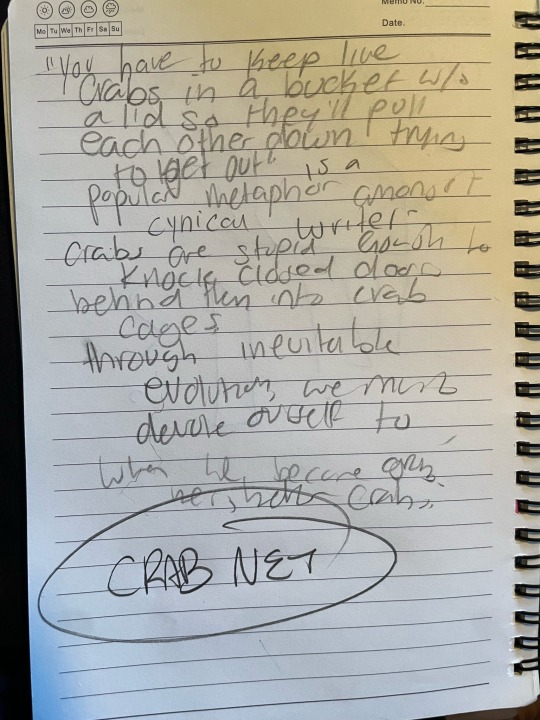 Memo No.
Date.
Mo Tu We Th Fr Sa Su
"You have to keep live
Crabs in a bucket w/o
a lid so they'll pull
each other down trying
to get out" is a
popular metaphor amongst
cynical writers
crabs are stupid enough to
knock closed doors
behind them into crab
cages
through inevitable
evolution, we must
devote ourself to
when we become
crabs.
CRAB NET